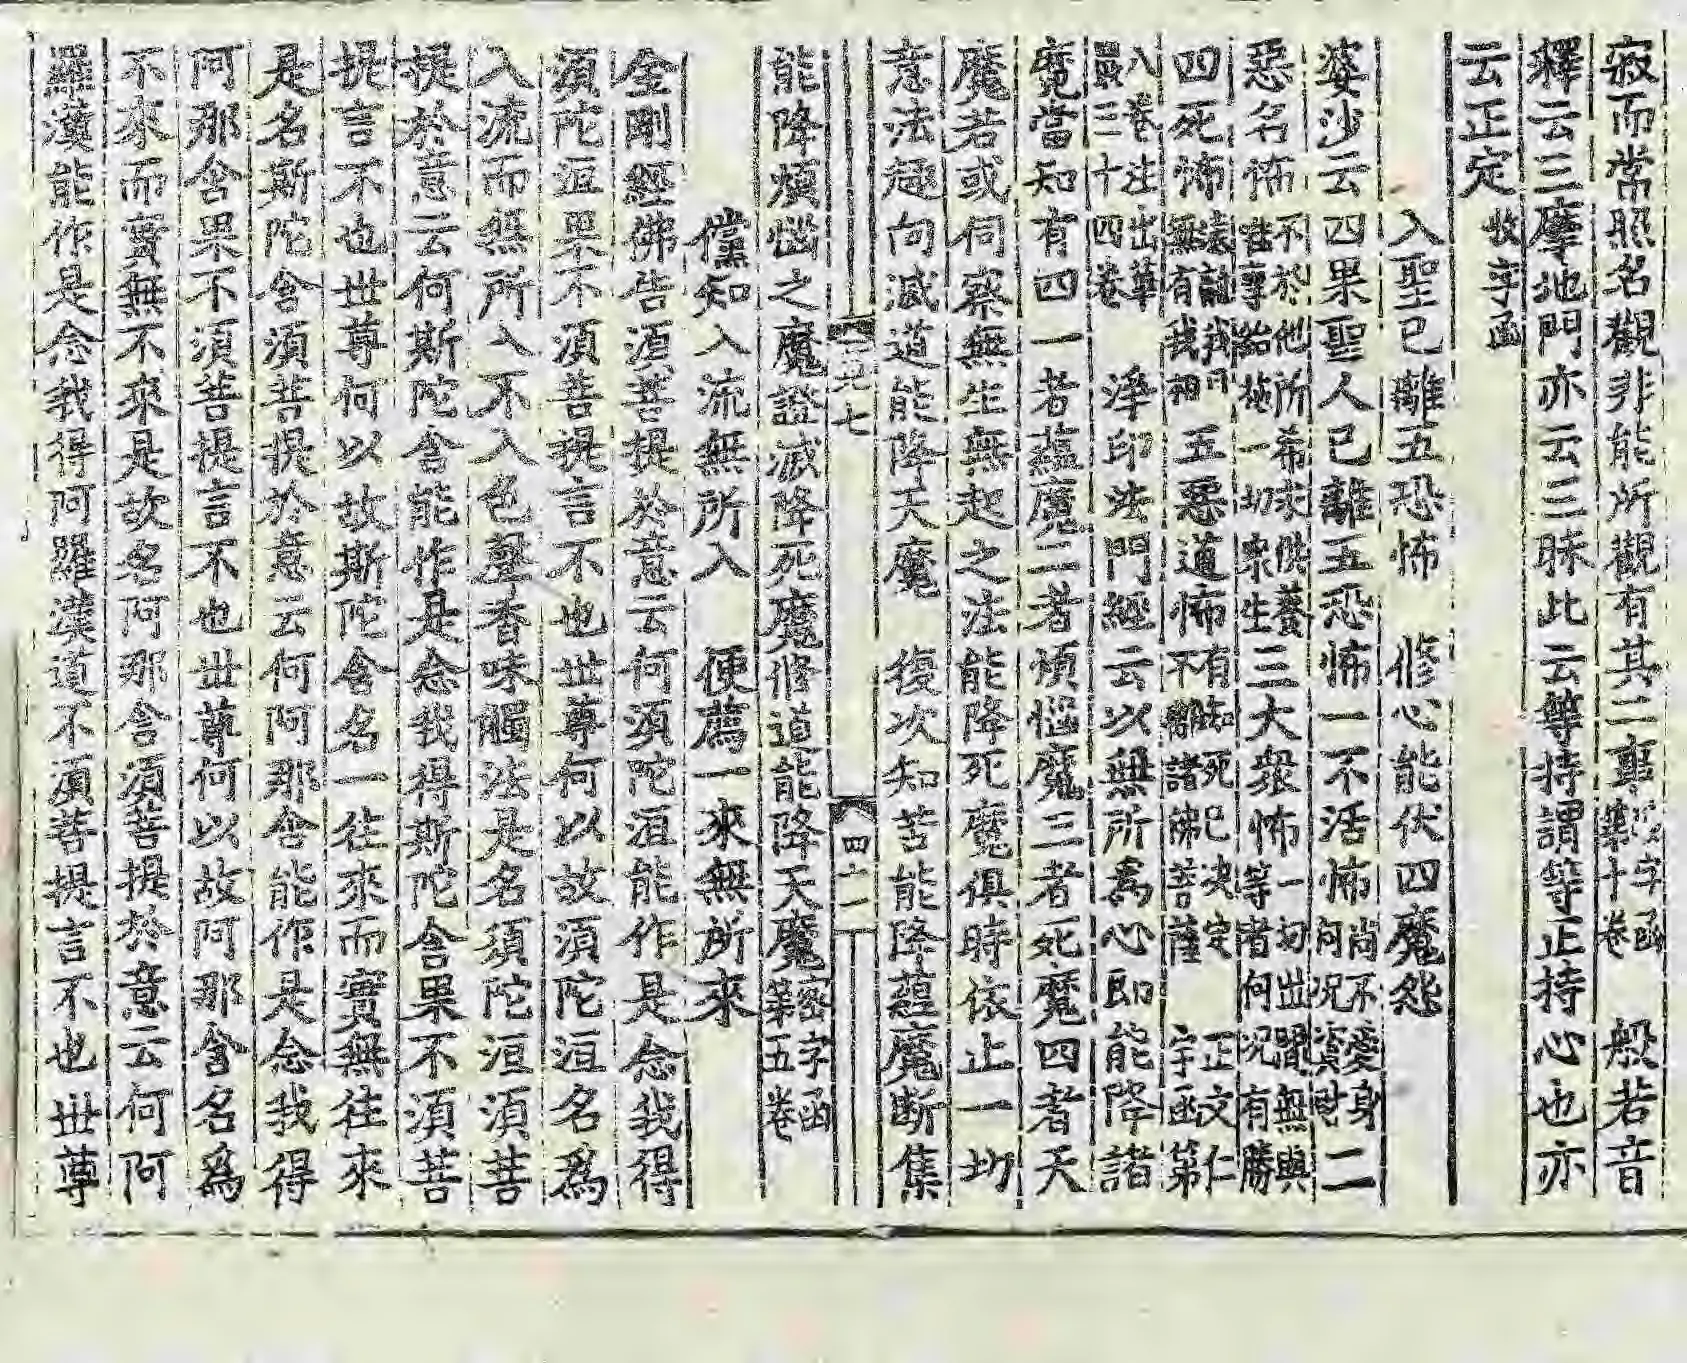 寂而常照名觀非能所觀有其二裏字函第十卷 般若音
釋云三摩地門亦云三昧此云等持謂等止持心也亦
云正定牧字函
入聖已離五恐怖 修心能伏四魔怨
婆沙云四果聖人已離五恐怖一不活怖尚不愛身何況資財二
惡名怖不於他所希求供養唯事給施一切衆生三大衆怖一切世間無與等者何況有勝
四死怖遠離我見無有我相五惡道怖有知死已決定不離諸佛菩薩 正文仁宇函第
八卷注出華嚴三十四卷 淨印法門經云以無所爲心即能降諸
魔當知有四一者蘊魔二者煩惱魔三者死魔四者天
魔若或伺察無生無起之法能降死魔俱時依止一切
意法趣向滅道能降天魔 復次知苦能降蘊魔斷集
能降煩惱之魔證滅降死魔修道能降天魔密字函第五卷
儻知入流無所入 便薦一來無所來
金剛經佛告須菩提於意云何須陀洹能作是念我得
須陀洹果不須菩提言不也世尊何以故須陀洹名爲
入流而無所入不入色聲香味觸法是名須陀洹須菩
提於意云何斯陀含能作是念我得斯陀含果不須菩
提言不也世尊何以故斯陀含名一往來而實無往來
是名斯陀含須菩提於意云何阿那含能作是念我得
阿那含果不須菩提言不也世尊何以故阿那含名爲
不來而實無不來是故名阿那含須菩提於意云何阿
羅漢能作是念我得阿羅漢道不須菩提言不也世尊